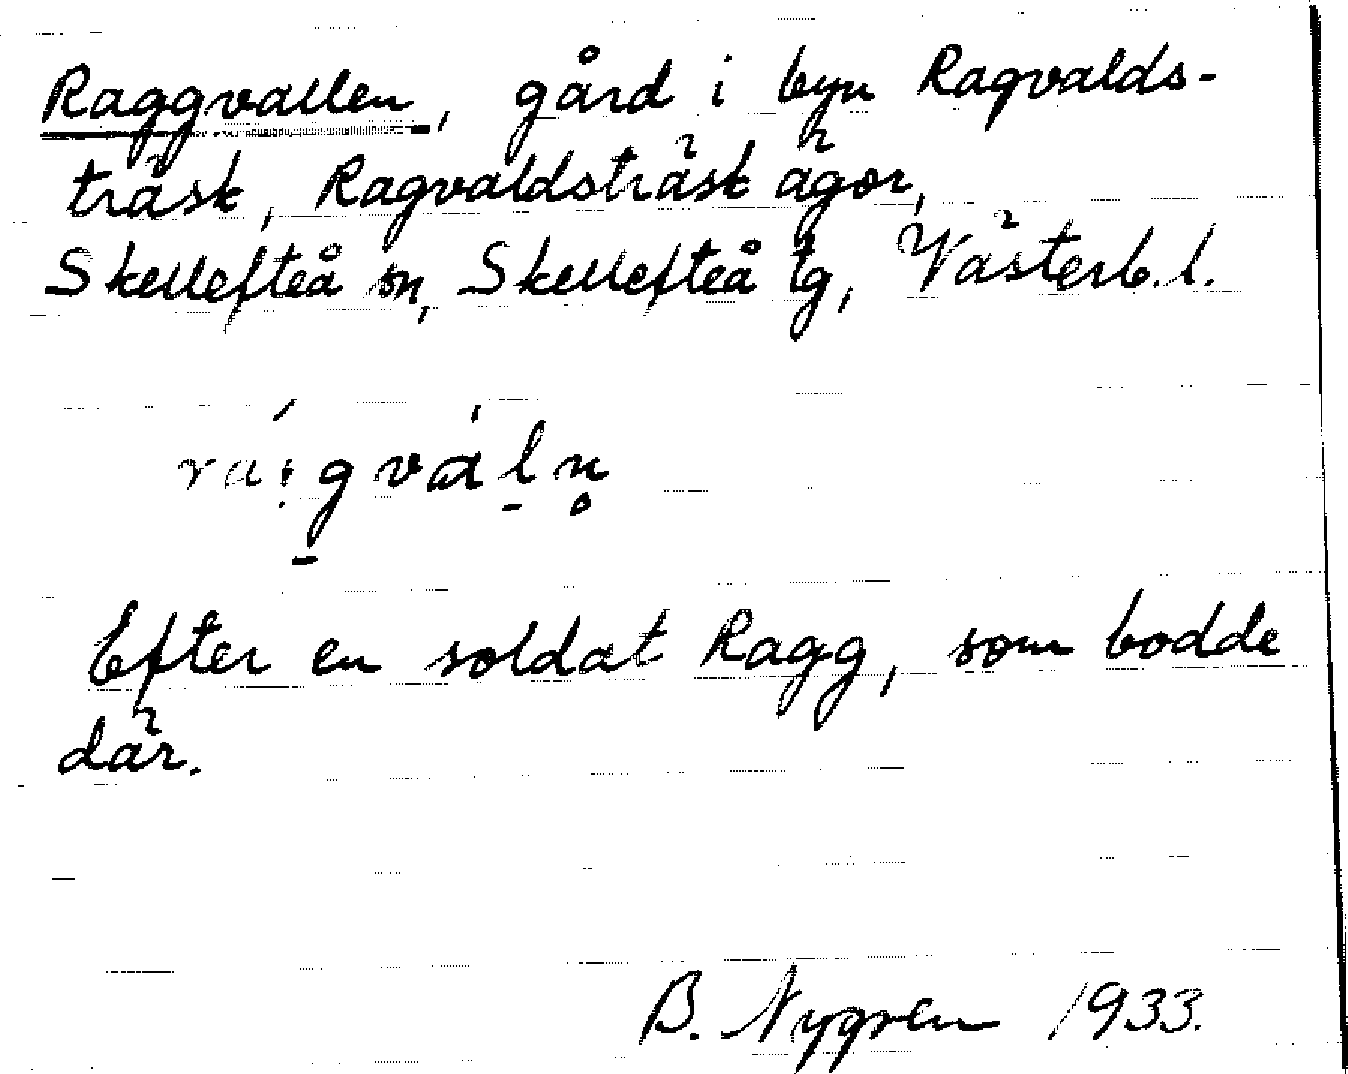 Raggvallen, gård i byn Ragvalds-
träsk, Ragvaldsträsk ägor,
Skellefteå sn, Skellefteå tg, Västerb. l.
ra:g̱váḻn̥
Efter en soldat Ragg, som bodde
där.
B. Nygren 1933.